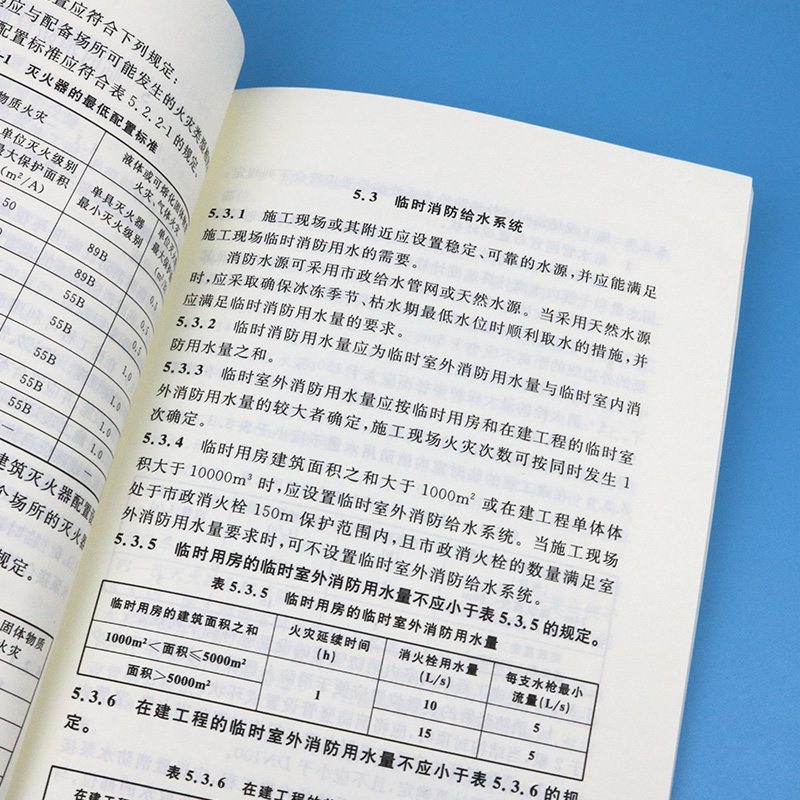 置应符合下列规定：
应与配备场所可能发生的火灾类
配置标准应符合表5.2.2-1的规定。
-1 灭火器的最低配置标准
物质火灾
液体或可熔化固体
火灾、气体火灾
单位灭火级别
最大保护面积
(m²/A)
单具灭火器
最小灭火级别
50
89B
0.5
89B
0.5
55B
0.5
55B
1.0
55B
1.0
55B
1.0
建筑灭火器配置
个场所的灭火器
规定。
固体物质
火灾
5.3 临时消防给水系统
5.3.1 施工现场或其附近应设置稳定、可靠的水源，并应能满足
施工现场临时消防用水的需要。
消防水源可采用市政给水管网或天然水源。当采用天然水源
时，应采取确保冰冻季节、枯水期最低水位时顺利取水的措施，并
应满足临时消防用水量的要求。
5.3.2 临时消防用水量应为临时室外消防用水量与临时室内消
防用水量之和。
5.3.3 临时室外消防用水量应按临时用房和在建工程的临时室
外消防用水量的较大者确定，施工现场火灾次数可按同时发生1
次确定。
5.3.4 临时用房建筑面积之和大于1000m²或在建工程单体体
积大于10000m³时，应设置临时室外消防给水系统。当施工现场
处于市政消火栓150m保护范围内，且市政消火栓的数量满足室
外消防用水量要求时，可不设置临时室外消防给水系统。
5.3.5 临时用房的临时室外消防用水量不应小于表5.3.5的规定。
表5.3.5 临时用房的临时室外消防用水量
临时用房的建筑面积之和 火灾延续时间(h) 消火栓用水量(L/s) 每支水枪最小流量(L/s)
1000m²＜面积≤5000m² 1 10 5
面积＞5000m² 15 5
5.3.6 在建工程的临时室外消防用水量不应小于表5.3.6的规
定。
表5.3.6 在建工程的